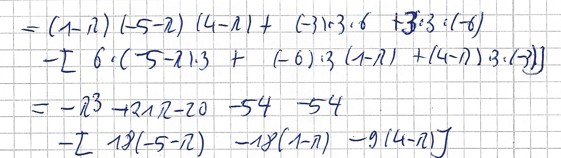 = (1-λ) (-5-λ) (4-λ) + (-3)·3·6 + 3·3·(-6)
-[ 6·(-5-λ)·3 + (-6)·3(1-λ) + (4-λ)·3·(-3)]
= -λ³ +21λ-20 -54 -54
-[ 18(-5-λ) -18(1-λ) -9(4-λ)]